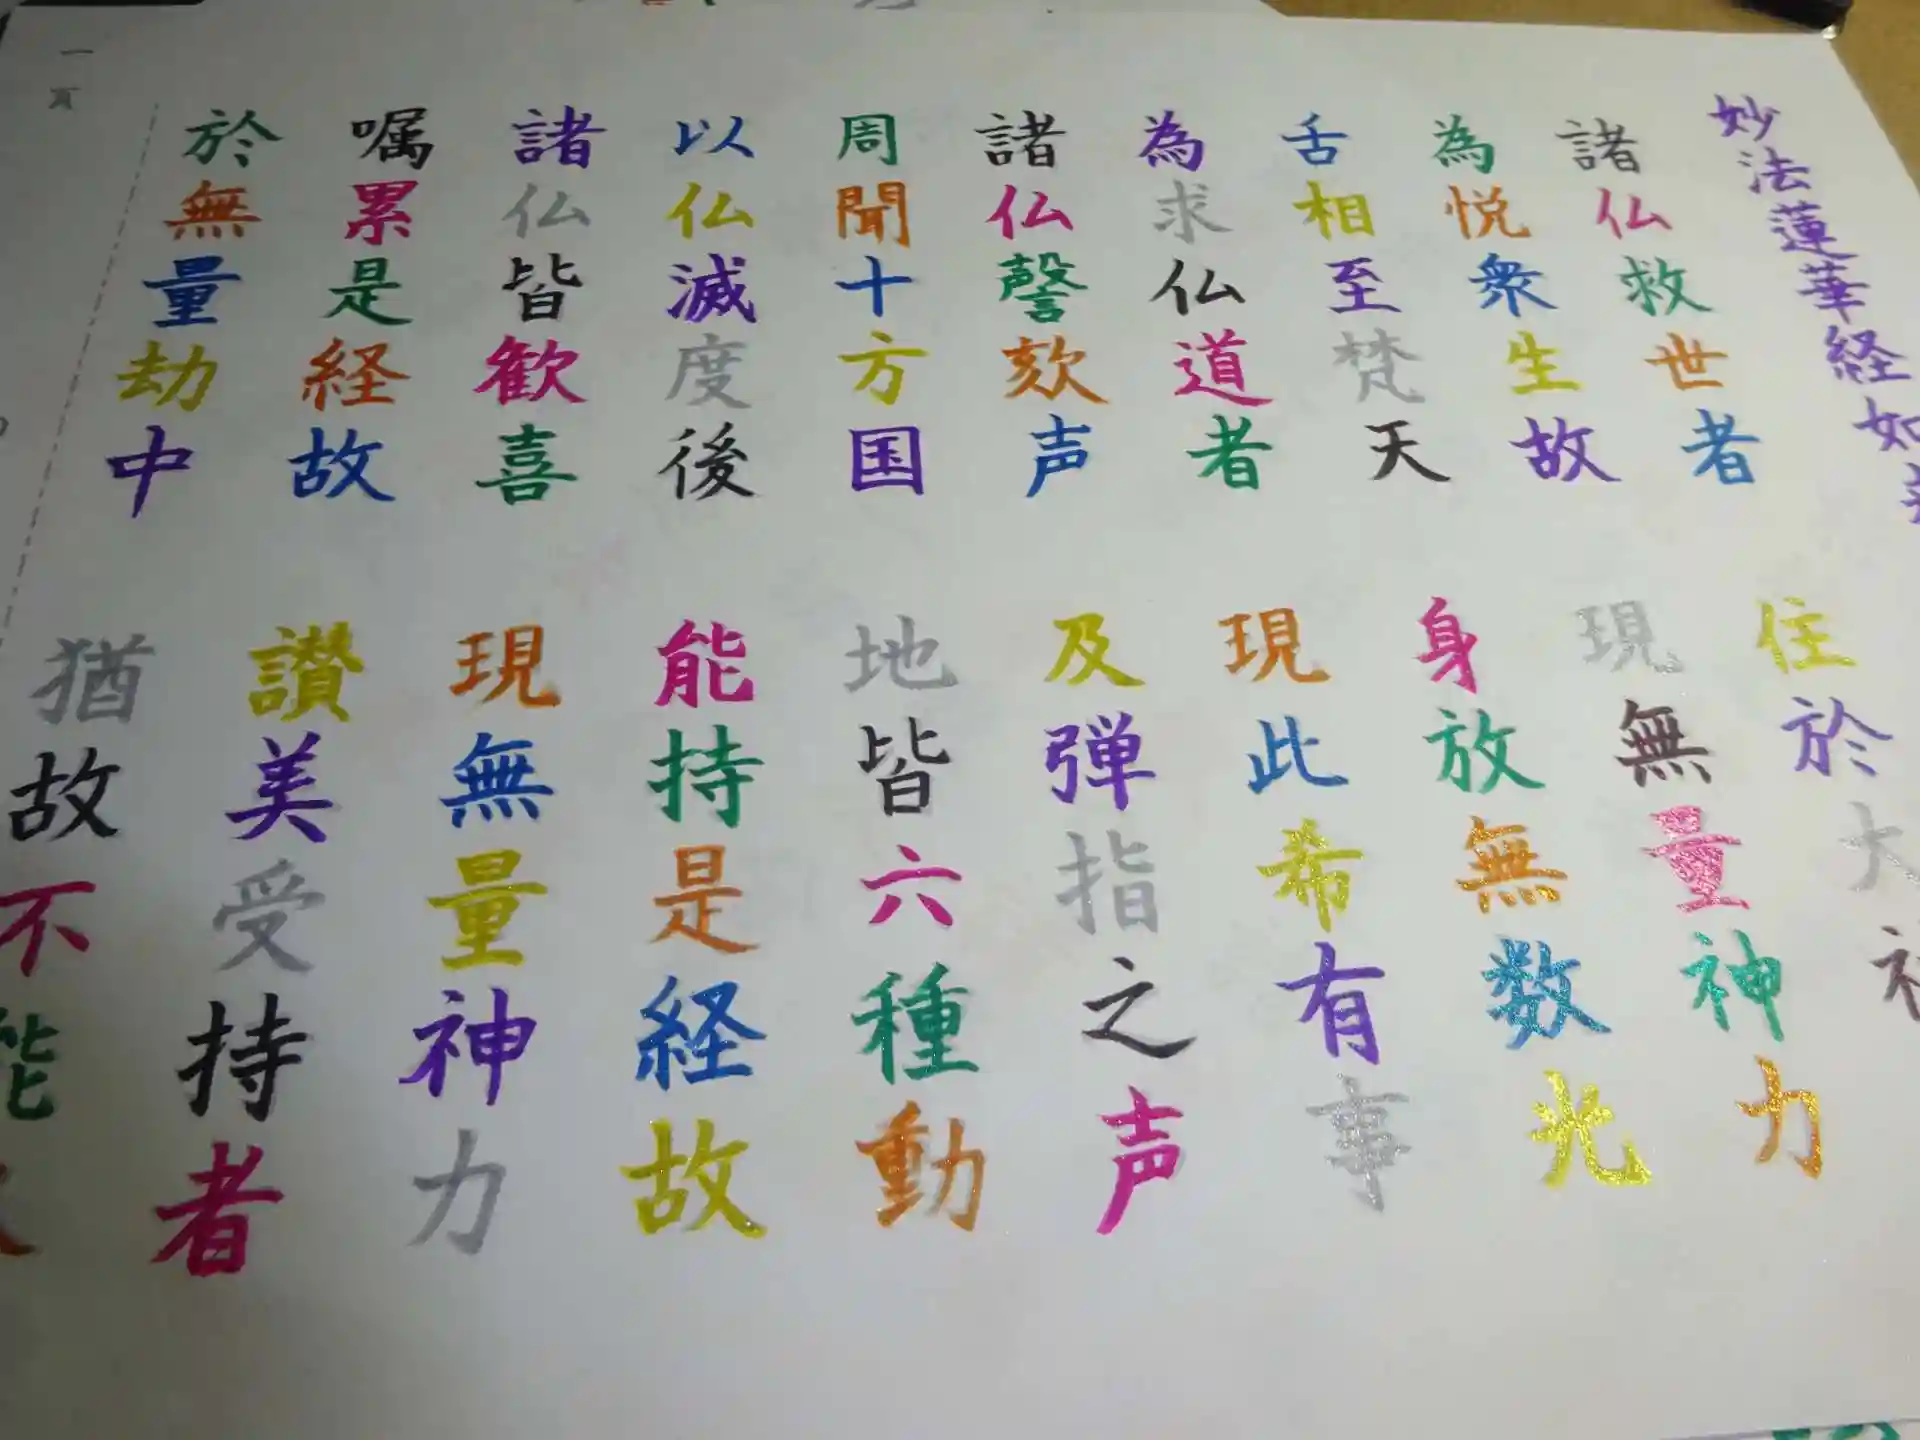 妙法蓮華経如
諸仏救世者
住於大
為悦衆生故
現無量神力
舌相至梵天
身放無数光
為求仏道者
現此希有事
諸仏謦欬声
及弾指之声
周聞十方国
地皆六種動
以仏滅度後
能持是経故
諸仏皆歓喜
現無量神力
嘱累是経故
讃美受持者
於無量劫中
猶故不能
一頁